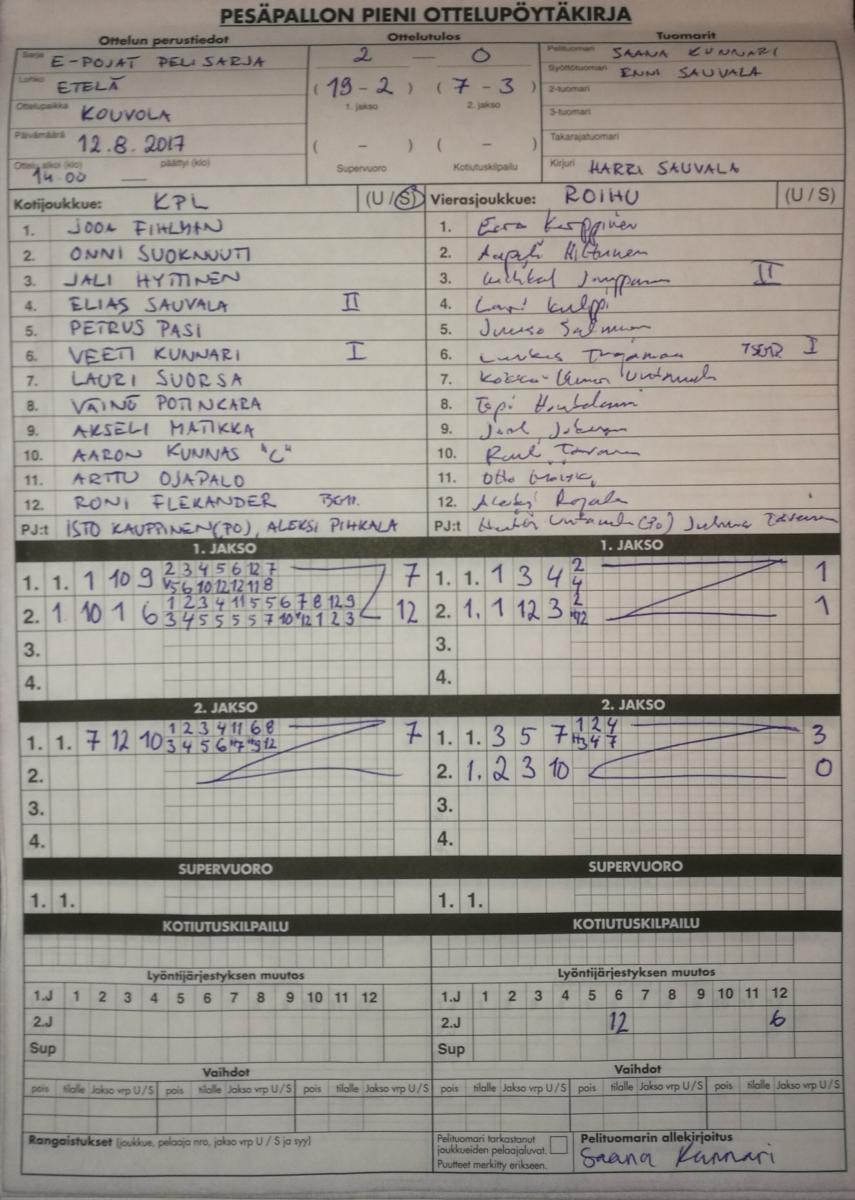 PESÄPALLON PIENI OTTELUPÖYTÄKIRJA
Ottelun perustiedot Ottelutulos Tuomarit
Sarja E-POJAT PELISARJA 2 — 0 Pelituomari SAANA KUNNARI
Lohko ETELÄ (19 - 2) (7 - 3) Syöttötuomari ENNI SAUVALA
1. jakso 2. jakso 2-tuomari
Ottelupaikka KOUVOLA 3-tuomari
Päivämäärä 12.8.2017 ( - ) ( - ) Takarajatuomari
Ottelu alkoi (klo) 14.00 päättyi (klo) — Supervuoro Kotiutuskilpailu Kirjuri HARRI SAUVALA
Kotijoukkue: KPL (U / S) Vierasjoukkue: ROIHU (U / S)
1. JOOA FIHLMAN 1. Eero Karppinen
2. ONNI SUOKNUUTI 2. Aapeli Hiltunen
3. JALI HYTTINEN 3. II
4. ELIAS SAUVALA II 4. Lauri Kulppi
5. PETRUS PASI 5. Juuso Salminen
6. VEETI KUNNARI I 6. I
7. LAURI SUORSA 7.
8. VÄINÖ POTINKARA 8. Topi
9. AKSELI MATIKKA 9.
10. AARON KUNNAS "C" 10.
11. ARTTU OJAPALO 11. Otto
12. RONI FLEKANDER 12. Aleksi Rajala
PJ:t ISTO KAUPPINEN (PO), ALEKSI PIHKALA PJ:t
1. JAKSO 1. JAKSO
1. 1. 1 10 9 2 3 4 5 6 12 7 7 1. 1. 1 3 4 2 1
5 6 10 12 12 11 8 4
2. 1 10 1 6 1 2 3 4 11 5 5 6 7 8 12 9 12 2. 1. 1 12 3 2 1
3 4 5 5 5 5 7 10 12 1 2 3 12
3. 3.
4. 4.
2. JAKSO 2. JAKSO
1. 1. 7 12 10 1 2 3 4 11 6 8 7 1. 1. 3 5 7 1 2 4 3
3 4 5 6 7 9 12 3 4 7
2. 2. 1. 2 3 10 0
3. 3.
4. 4.
SUPERVUORO SUPERVUORO
1. 1. 1. 1.
KOTIUTUSKILPAILU KOTIUTUSKILPAILU
Lyöntijärjestyksen muutos Lyöntijärjestyksen muutos
1.J 1 2 3 4 5 6 7 8 9 10 11 12 1.J 1 2 3 4 5 6 7 8 9 10 11 12
2.J 2.J 12 6
Sup Sup
Vaihdot Vaihdot
pois tilalle Jakso vrp U/S pois tilalle Jakso vrp U/S pois tilalle Jakso vrp U/S pois tilalle Jakso vrp U/S pois tilalle Jakso vrp U/S pois tilalle Jakso vrp U/S
Rangaistukset (joukkue, pelaaja nro, jakso vrp U / S ja syy) Pelituomari tarkastanut Pelituomarin allekirjoitus
joukkueiden pelaajaluvat. Saana Kunnari
Puutteet merkitty erikseen.